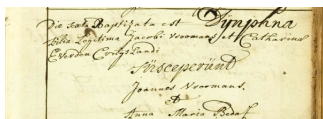 Die sexta Baptizata est Dymphna
filia Legitima Jacobi Voormans et Catharina
Verdon Conjugum
Susceperunt
Joannes Voormans
et
Anna Maria Bedaf